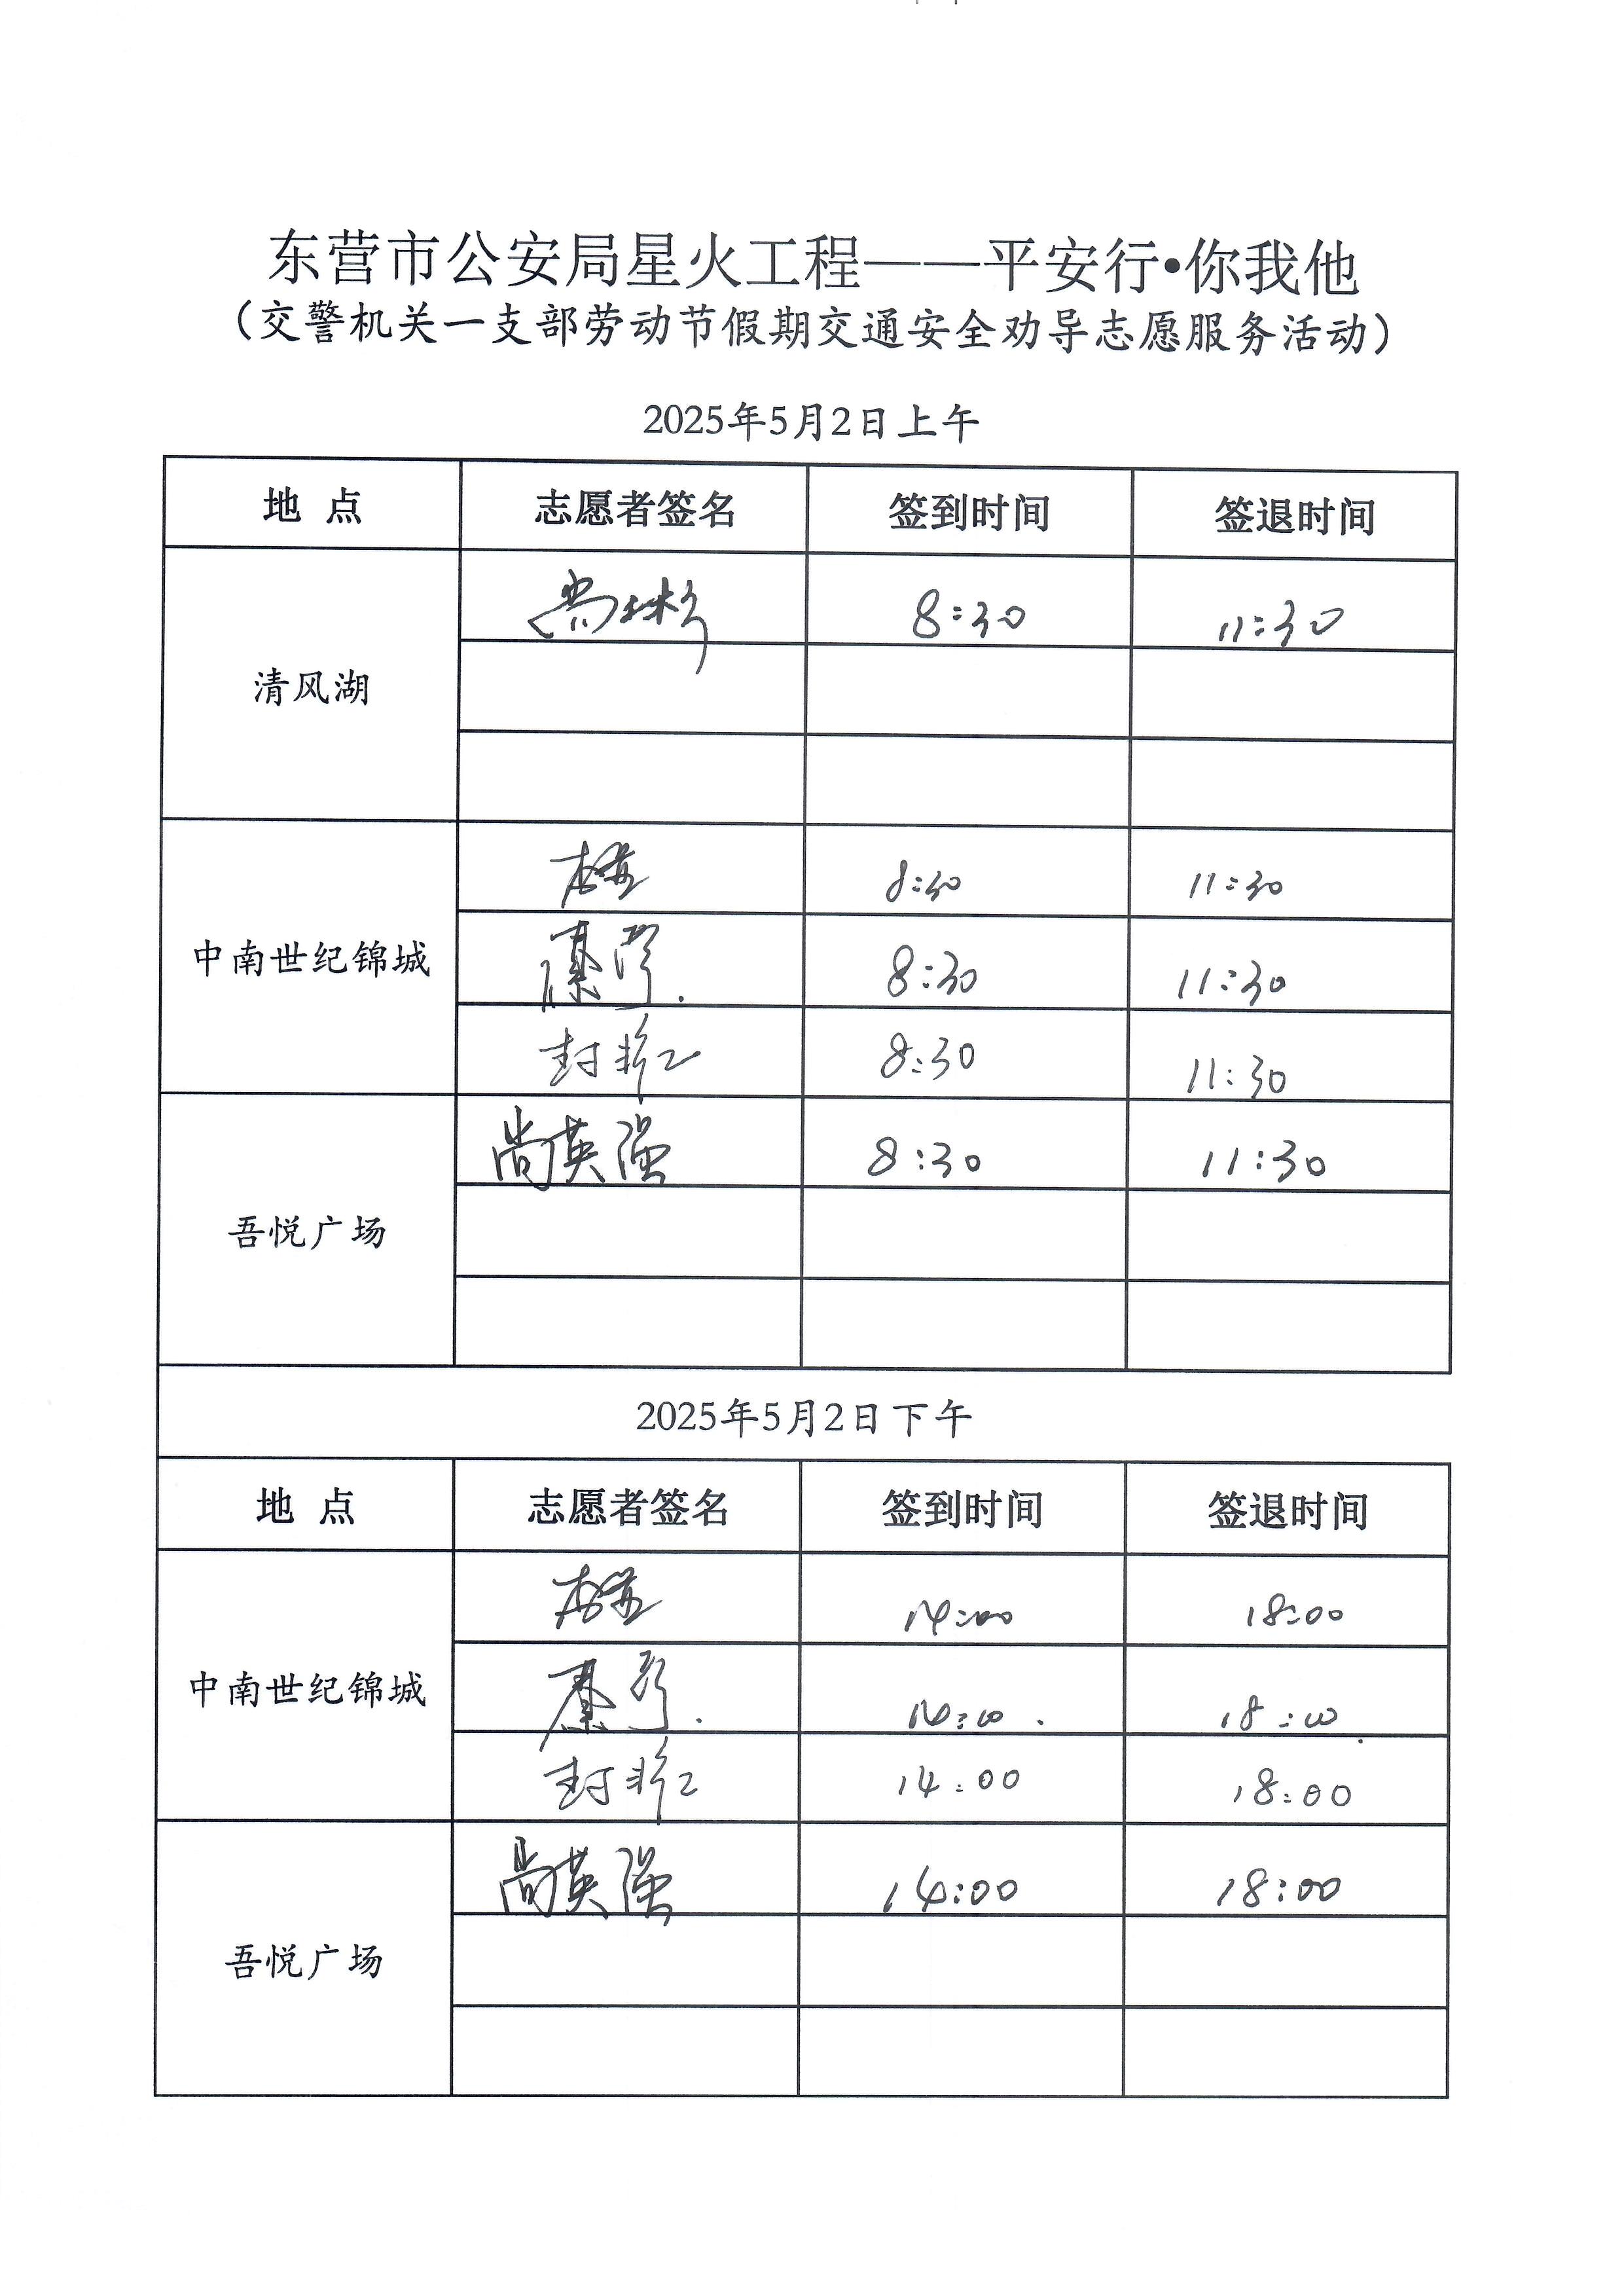 东营市公安局星火工程——平安行•你我他
（交警机关一支部劳动节假期交通安全劝导志愿服务活动）
2025年5月2日上午
地 点 志愿者签名 签到时间 签退时间
清风湖 8:30 11:30
8:30 11:30
中南世纪锦城 8:30 11:30
封 8:30 11:30
吾悦广场 尚英强 8:30 11:30
2025年5月2日下午
地 点 志愿者签名 签到时间 签退时间
14:00 18:00
中南世纪锦城 14:00 18:00
封 14:00 18:00
吾悦广场 尚英强 14:00 18:00